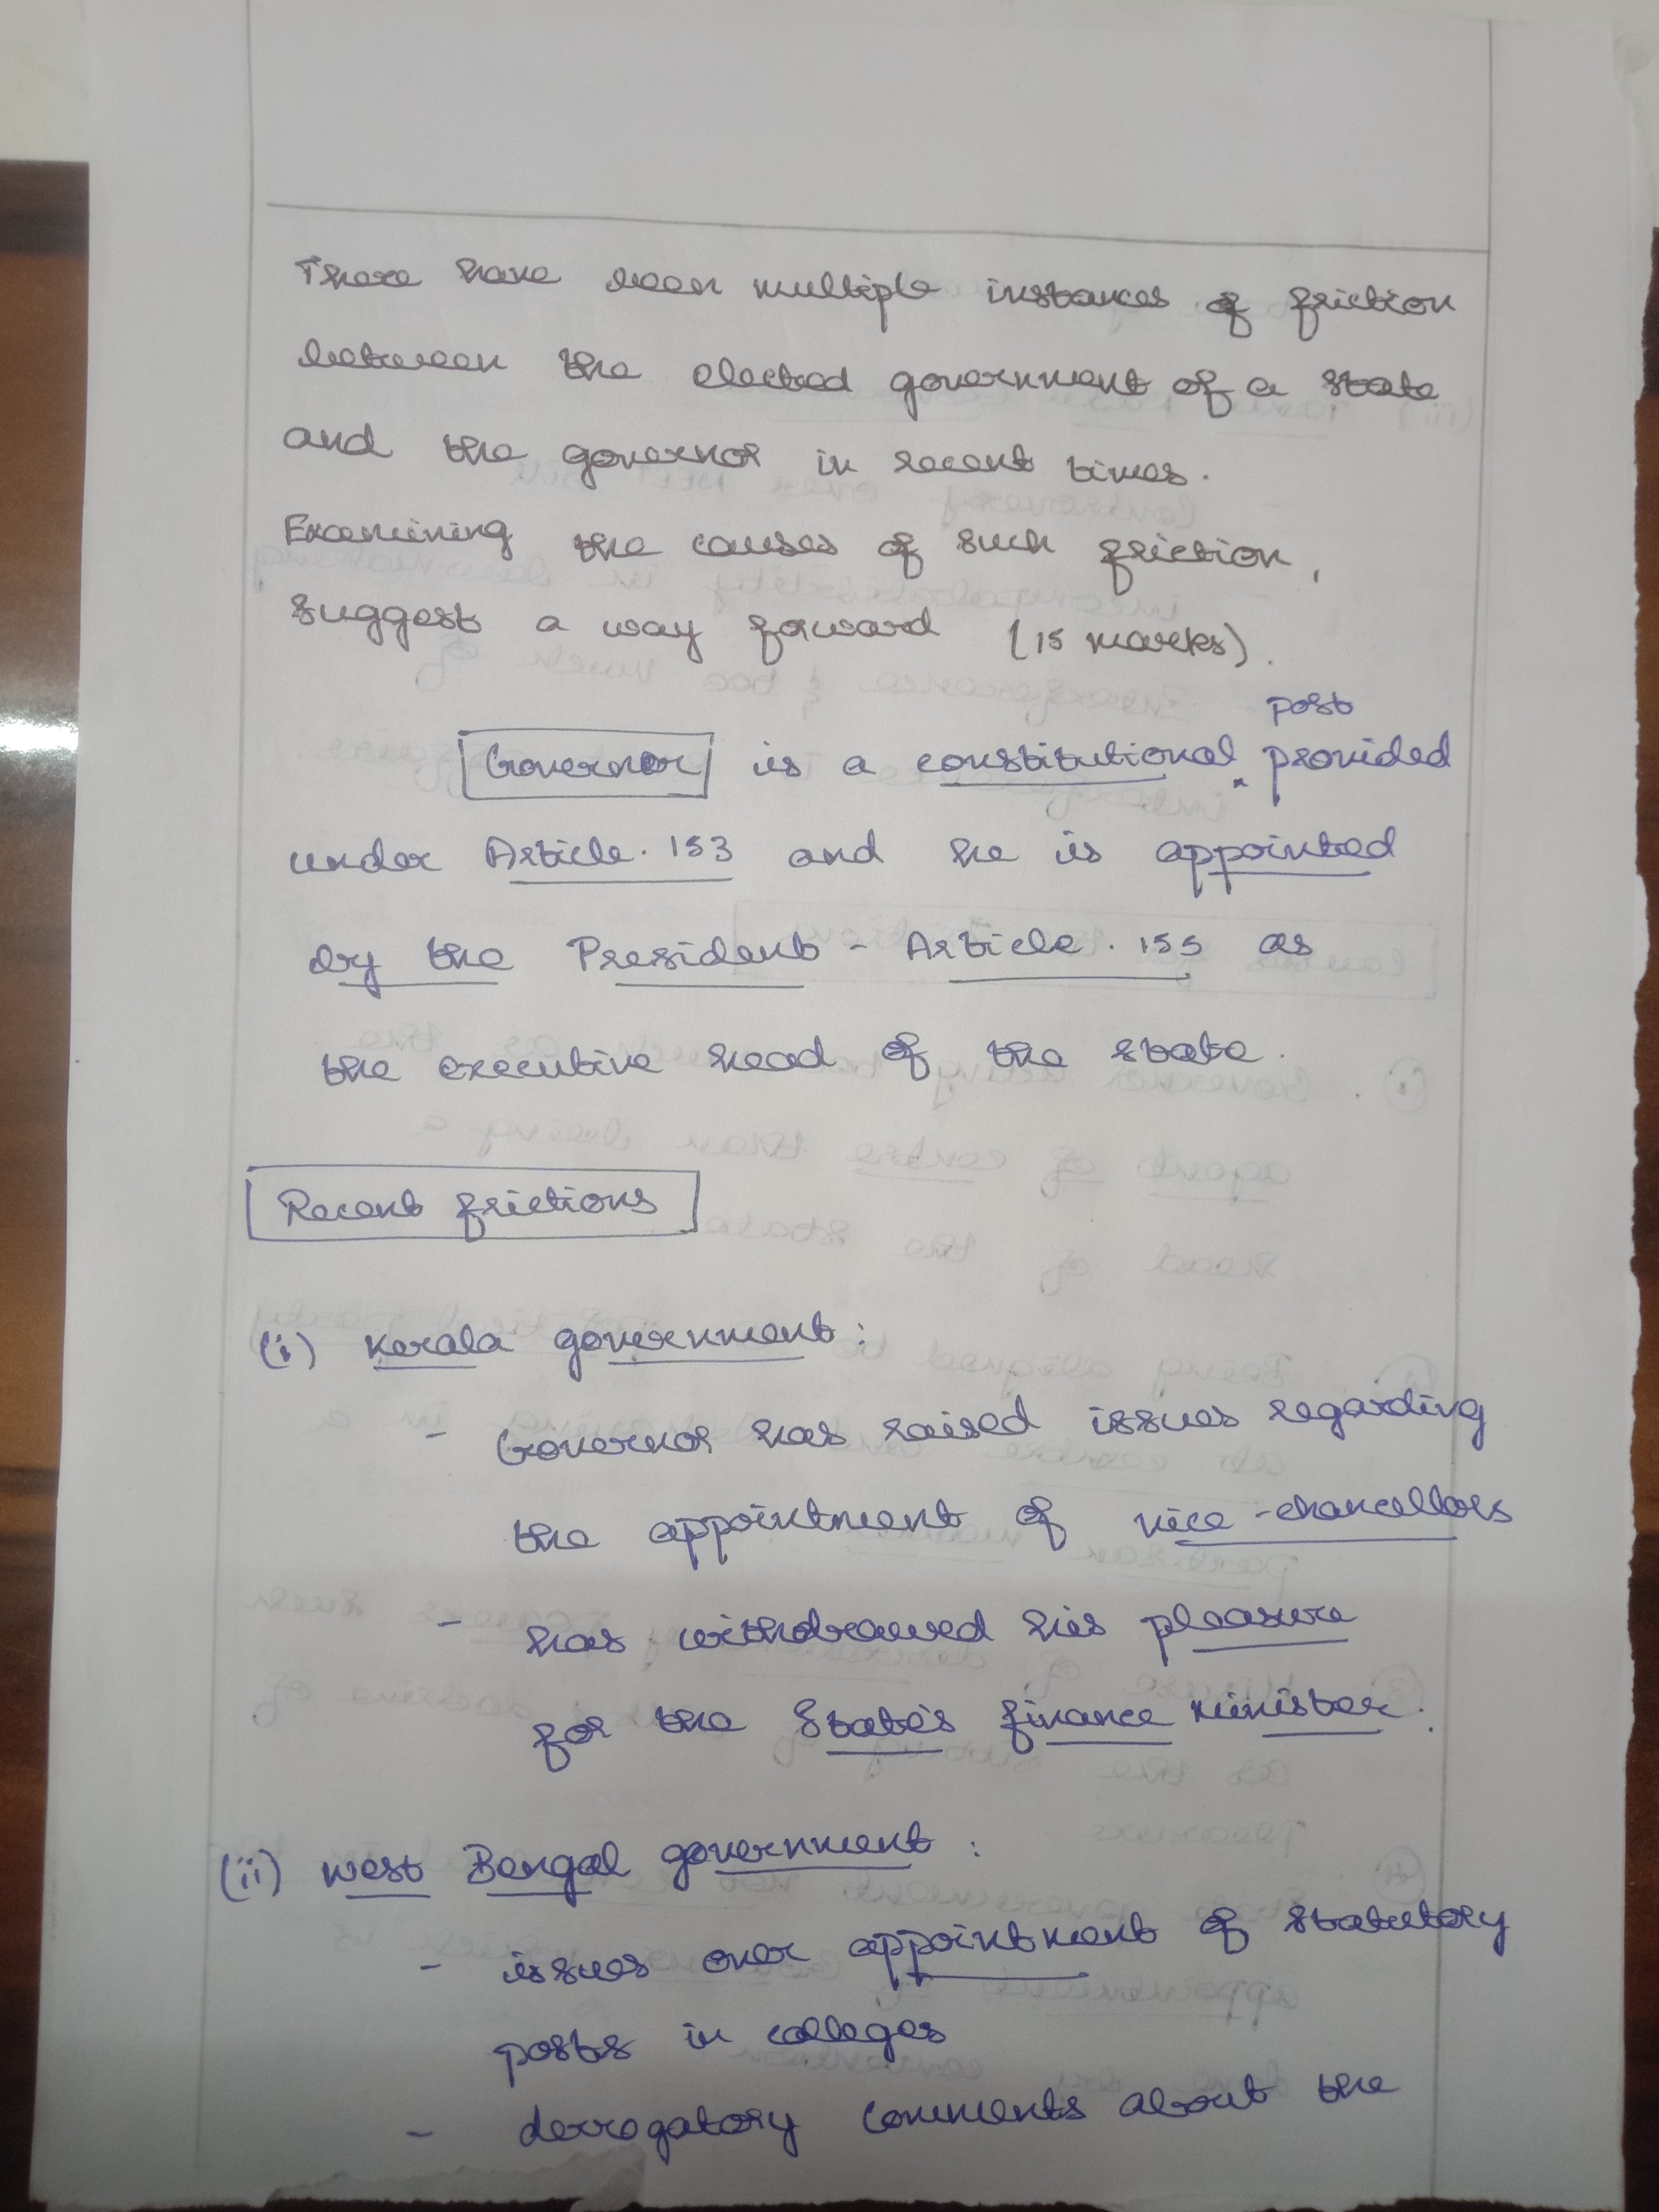 There have been multiple instances of friction
between the elected government of a state
and the governor in recent times.
Examining the causes of such friction,
suggest a way forward (15 marks).
post
Governor is a constitutional provided
under Article. 153 and he is appointed
by the President - Article. 155 as
the executive head of the state.
Recent frictions
(i) Kerala government:
- Governor has raised issues regarding
the appointment of vice-chancellors
- has withdrawed his pleasure
for the State's finance minister.
(ii) West Bengal government:
- issues over appointment of statutory
posts in colleges
- derrogatory comments about the